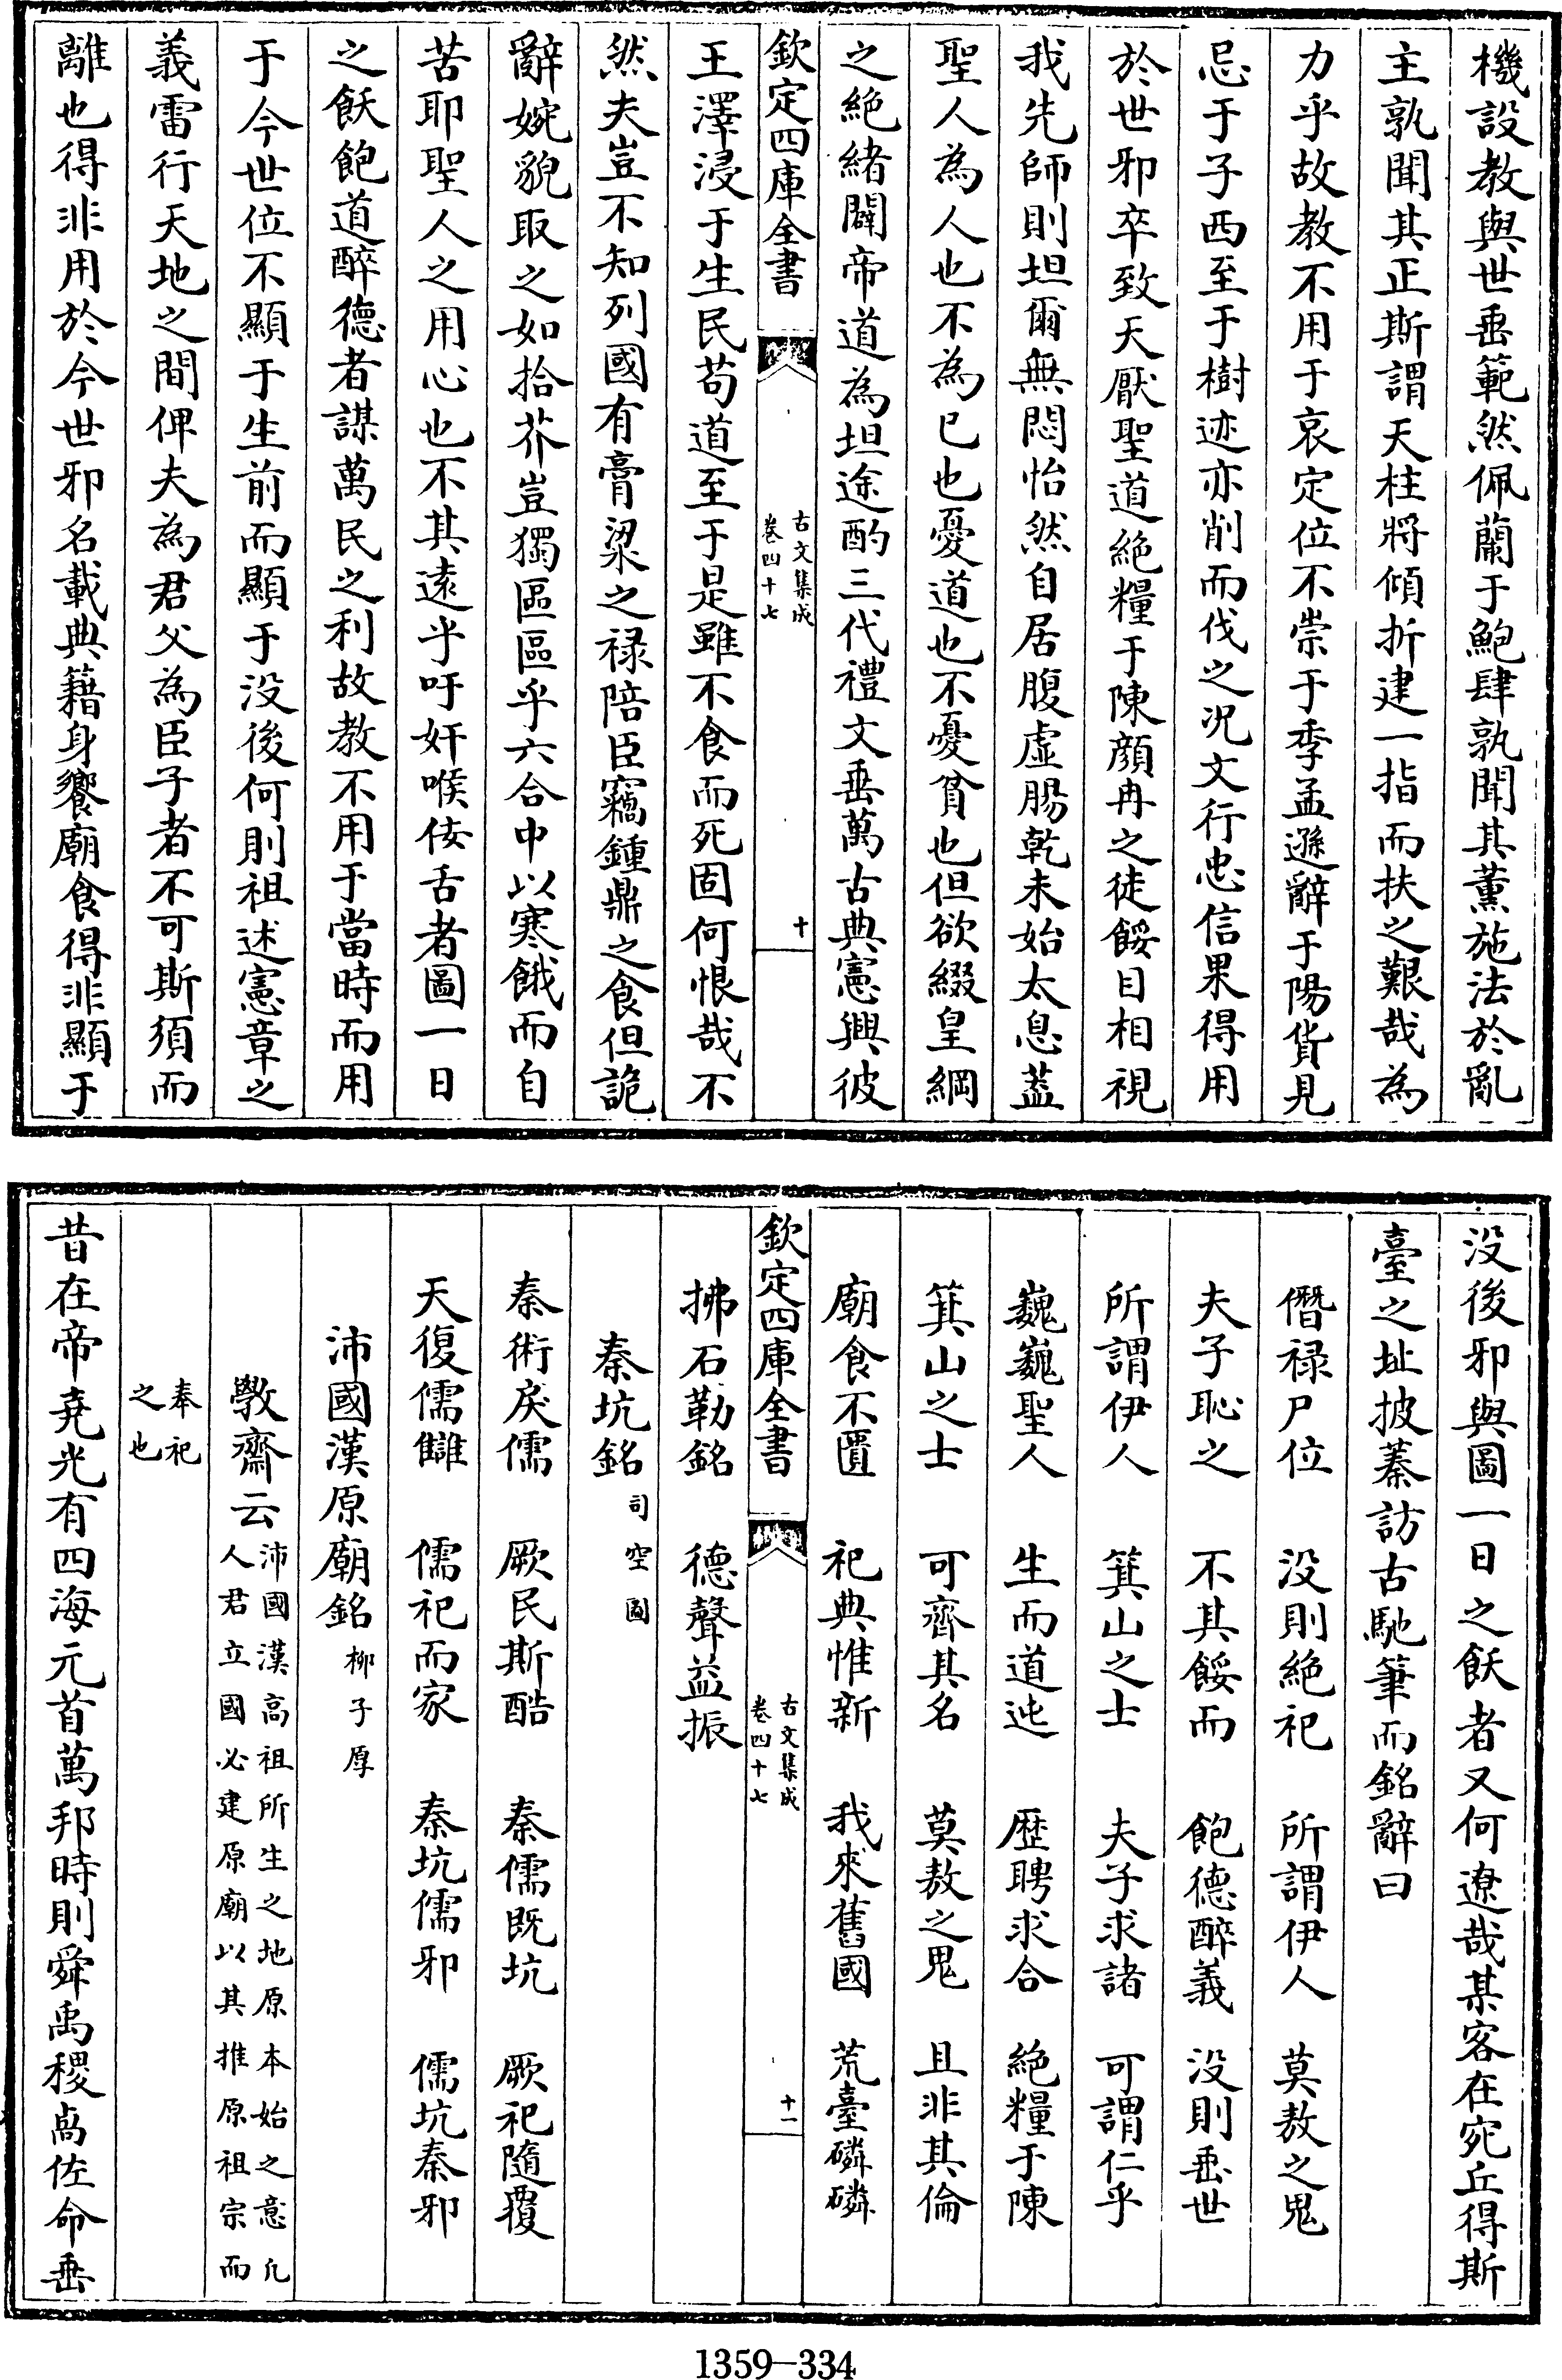 機設教與世垂範然佩蘭于鮑肆孰聞其薫施法於亂
主孰聞其正斯謂天柱將傾折建一指而扶之艱哉為
力乎故教不用于哀定位不崇于季孟遜辭于陽貨見
忌于子西至于樹迹亦削而伐之況文行忠信果得用
於世邪卒致天厭聖道絶糧于陳顔冉之徒餒目相視
我先師則坦爾無悶怡然自居腹虚腸乾未始太息蓋
聖人為人也不為已也憂道也不憂貧也但欲綴皇綱
之絶緒闢帝道為坦途酌三代禮文垂萬古典憲興彼
欽定四庫全書
古文集成
卷四十七
十
王澤浸于生民苟道至于是雖不食而死固何恨哉不
然夫豈不知列國有膏粱之禄陪臣竊鍾鼎之食但詭
辭婉貌取之如拾芥豈獨區區乎六合中以寒餓而自
苦耶聖人之用心也不其遠乎吁奸喉佞舌者圖一日
之飫飽道醉德者謀萬民之利故教不用于當時而用
于今世位不顯于生前而顯于没後何則祖述憲章之
義雷行天地之間俾夫為君父為臣子者不可斯須而
離也得非用於今世邪名載典籍身饗廟食得非顯于
没後邪與圖一日之飫者又何遼哉某客在宛丘得斯
臺之址披蓁訪古馳筆而銘辭曰
僭禄尸位　没則絶祀　所謂伊人　莫敖之鬼
夫子恥之　不其餒而　飽德醉義　没則垂世
所謂伊人　箕山之士　夫子求諸　可謂仁乎
巍巍聖人　生而道迍　歴聘求合　絶糧于陳
箕山之士　可齊其名　莫敖之鬼　且非其倫
廟食不匱　祀典惟新　我來舊國　荒臺磷磷
欽定四庫全書
古文集成
卷四十七
十一
拂石勒銘　德聲益振
秦坑銘　司空圖
秦術戾儒　厥民斯酷　秦儒既坑　厥祀隨覆
天復儒讎　儒祀而家　秦坑儒邪　儒坑秦邪
沛國漢原廟銘　柳子厚
斆齋云沛國漢高祖所生之地原本始之意凡
人君立國必建原廟以其推原祖宗而
奉祀
之也
昔在帝堯光有四海元首萬邦時則舜禹稷卨佐命垂
1359-334